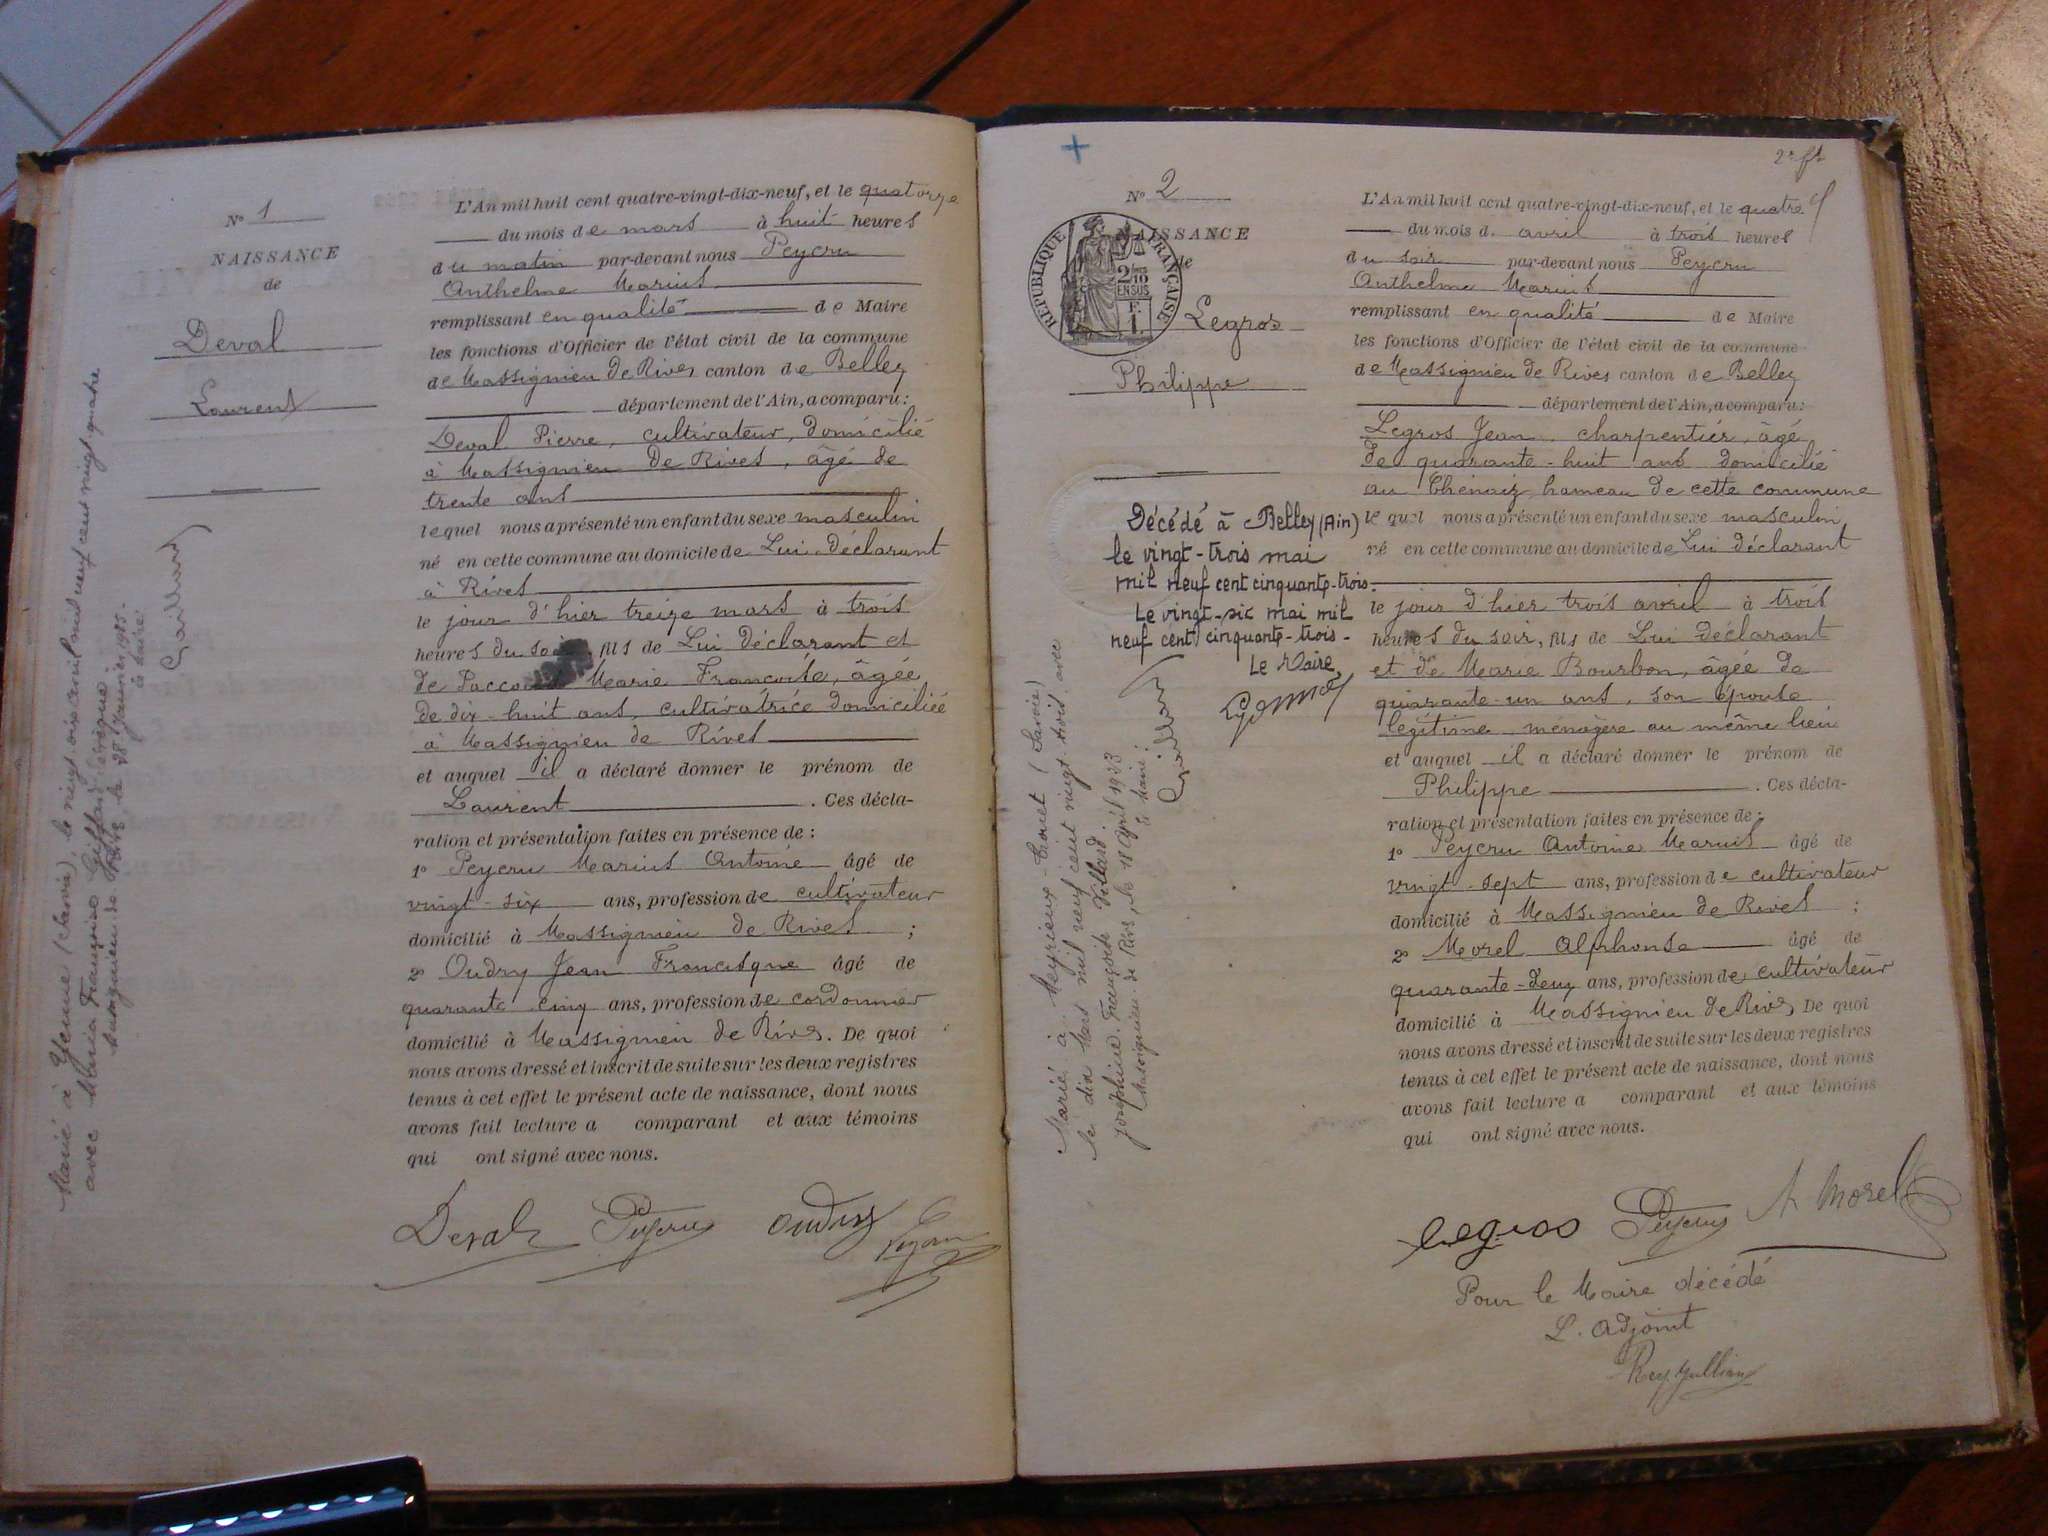 N° 1
NAISSANCE
de
Deval
Laurent
L'An mil huit cent quatre-vingt-dix-neuf, et le quatorze
du mois de mars à huit heures
du matin par-devant nous Peycru
Anthelme Marius
remplissant en qualité de Maire
les fonctions d'Officier de l'état civil de la commune
de Massignieu de Rives canton de Belley
département de l'Ain, a comparu:
Deval Pierre, cultivateur, domicilié
à Massignieu de Rives, âgé de
trente ans
lequel nous a présenté un enfant du sexe masculin
né en cette commune au domicile de Lui déclarant
à Rives
le jour d'hier treize mars à trois
heures du soir, fils de Lui Déclarant et
de Marie Françoise, âgée
de dix-huit ans, cultivatrice domiciliée
à Massignieu de Rives
et auquel il a déclaré donner le prénom de
Laurent. Ces décla-
ration et présentation faites en présence de :
1° Peycru Marius Antoine âgé de
vingt-six ans, profession de cultivateur
domicilié à Massignieu de Rives ;
2° Oudry Jean Francisque âgé de
quarante cinq ans, profession de cordonnier
domicilié à Massignieu de Rives. De quoi
nous avons dressé et inscrit de suite sur les deux registres
tenus à cet effet le présent acte de naissance, dont nous
avons fait lecture a comparant et aux témoins
qui ont signé avec nous.
Deval Peycru Oudry
Marié à Yenne (Savoie), le vingt avril mil neuf cent vingt-quatre
avec Maria Françoise
Massignieu de Rives le 28 Janvier 1925.
Le Maire:
Gaillard
2e ft
N° 2
NAISSANCE
de
RÉPUBLIQUE FRANÇAISE
2/10
EN SUS
F.
1.
Legros
Philippe
Décédé à Belley (Ain)
le vingt-trois mai
mil neuf cent cinquante-trois.
Le vingt-six mai mil
neuf cent cinquante-trois.
Le Maire,
Marié à Meyrieux-Trouet (Savoie)
le dix Mars mil neuf cent vingt-trois avec
Joséphine Françoise Villard
Massignieu de Rives, le 18 Avril 1923
Le Maire:
Gaillard
L'An mil huit cent quatre-vingt-dix-neuf, et le quatre
du mois d. avril à trois heures
du soir par-devant nous Peycru
Anthelme Marius
remplissant en qualité de Maire
les fonctions d'Officier de l'état civil de la commune
de Massignieu de Rives canton de Belley
département de l'Ain, a comparu:
Legros Jean, charpentier, âgé
de quarante-huit ans domicilié
au hameau de cette commune
lequel nous a présenté un enfant du sexe masculin
né en cette commune au domicile de Lui déclarant
le jour d'hier trois avril à trois
heures du soir, fils de Lui déclarant
et de Marie Bourbon, âgée de
quarante-un ans, son épouse
légitime, ménagère au même lieu
et auquel il a déclaré donner le prénom de
Philippe. Ces décla-
ration et présentation faites en présence de :
1° Peycru Antoine Marius âgé de
vingt-sept ans, profession de cultivateur
domicilié à Massignieu de Rives ;
2° Morel Alphonse âgé de
quarante-deux ans, profession de cultivateur
domicilié à Massignieu de Rives De quoi
nous avons dressé et inscrit de suite sur les deux registres
tenus à cet effet le présent acte de naissance, dont nous
avons fait lecture a comparant et aux témoins
qui ont signé avec nous.
Legros Peycru A Morel
Pour le Maire décédé
L. Adjoint